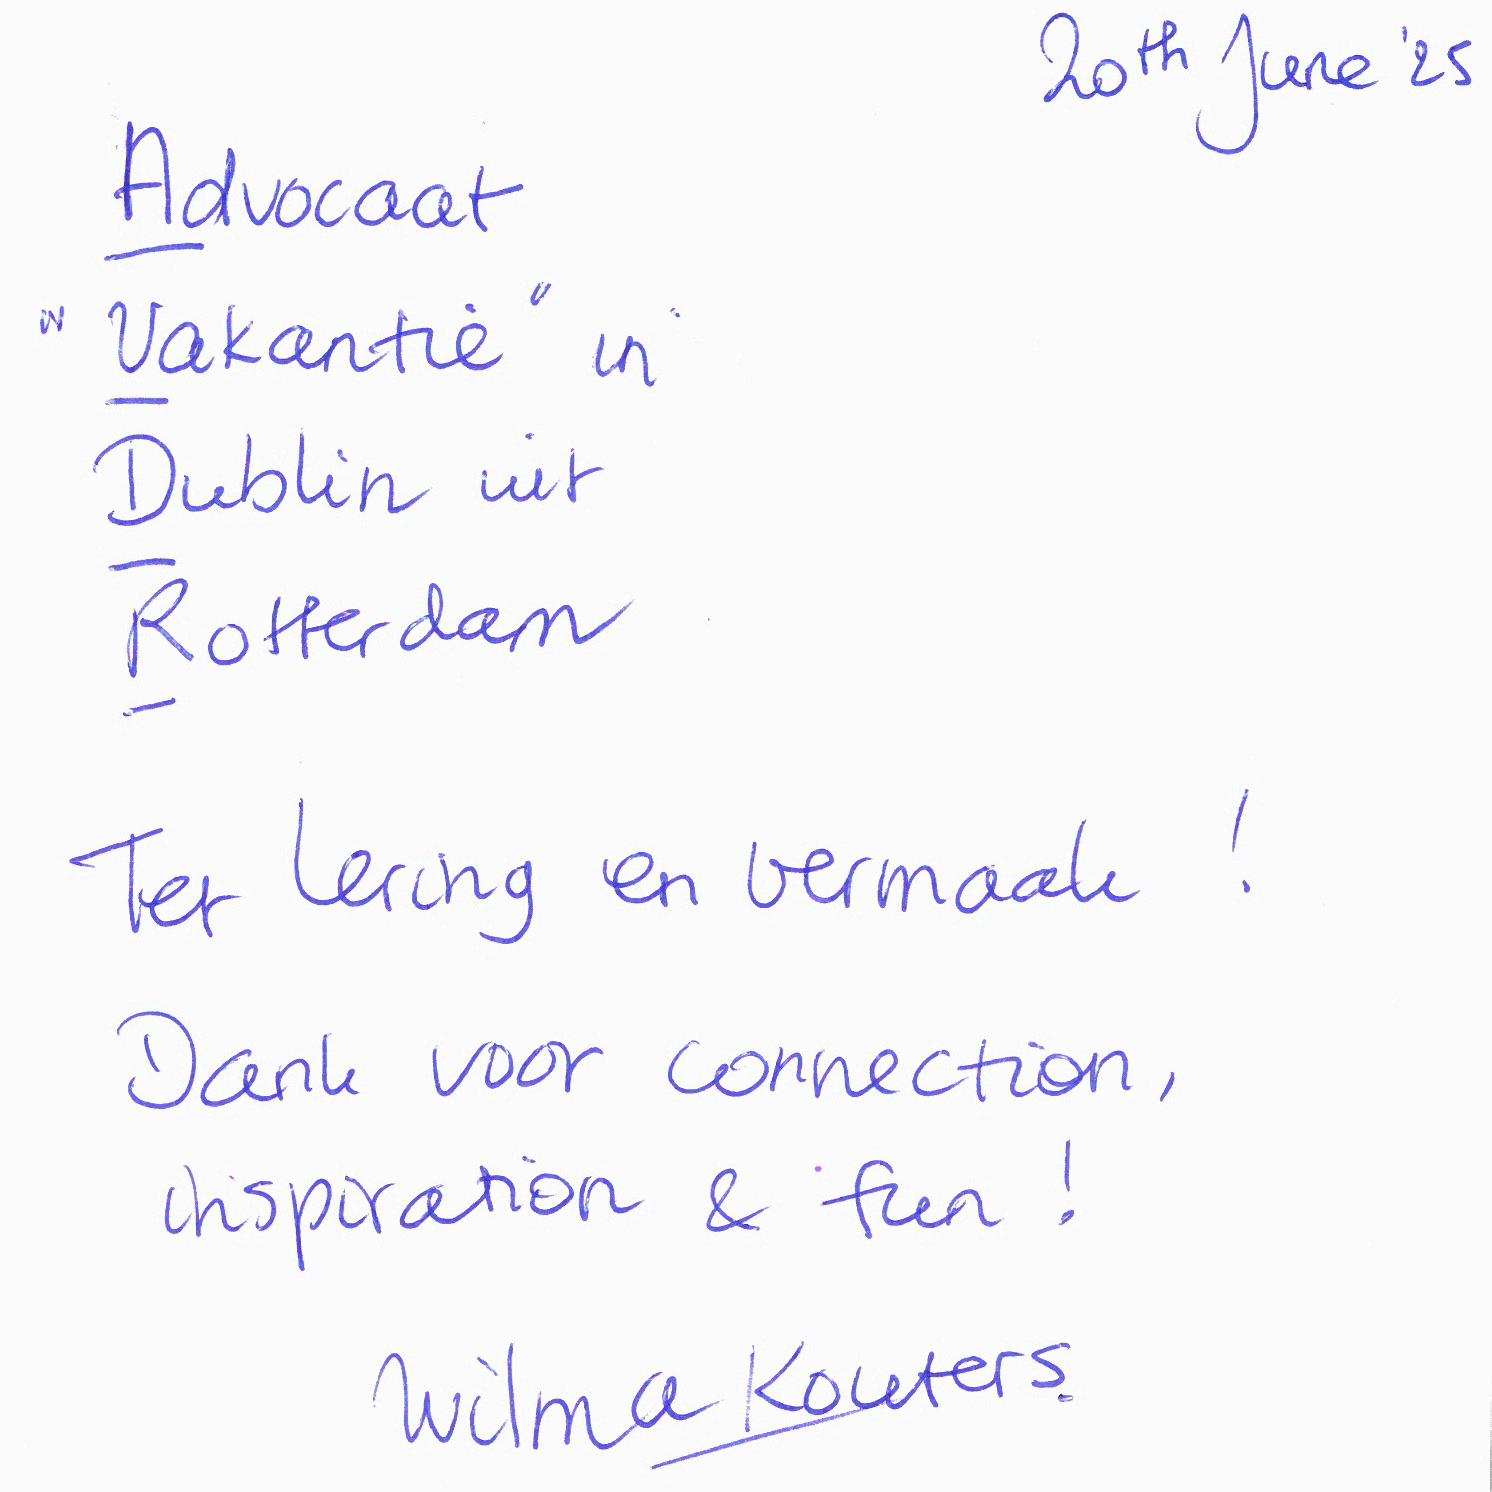 20th June '25
Advocaat
"Vakantie" in
Dublin uit
Rotterdam
Ter Lering en vermaak !
Dank voor connection,
inspiration & fun !
Wilma Kouters.